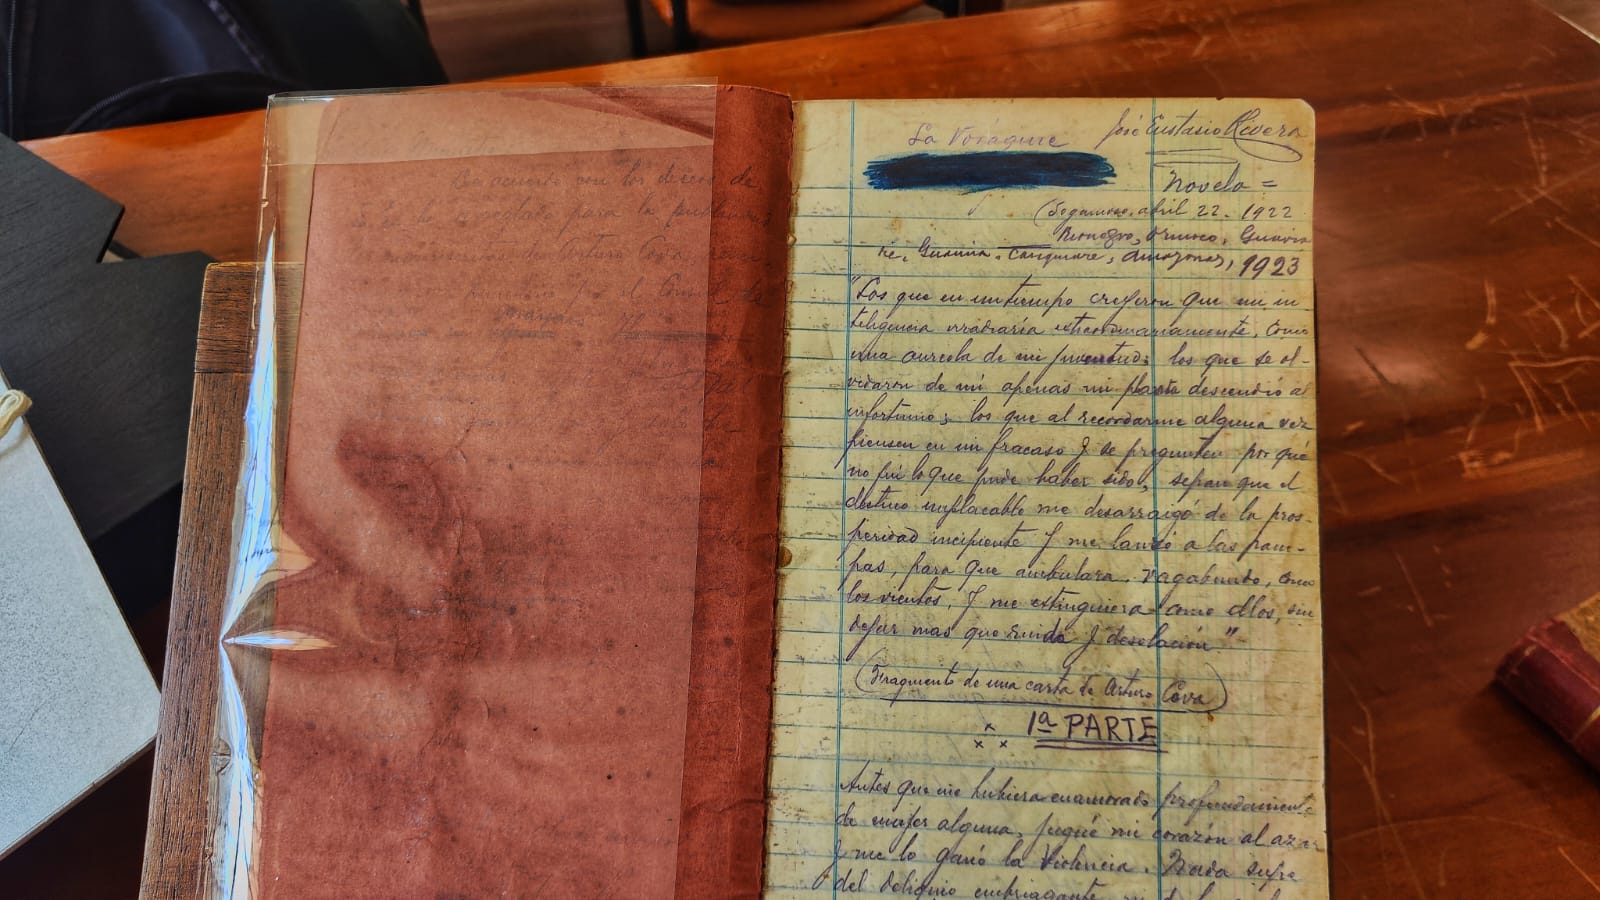 De acuerdo con los deseos de
S. S. he arreglado para la publicación
los manuscritos de Arturo Cova,
por el Consul de
La Vorágine José Eustasio Rivera
Novela =
(Sogamoso, abril 22 - 1922
Rionegro, Orinoco, Guavia
re, Guainia, Casiquiare, Amazonas, 1923
"Los que en un tiempo creyeron que mi in
teligencia irradiaría extraordinariamente, como
una aureola de mi juventud; los que se ol-
vidaron de mí apenas mi planta descendió al
infortunio; los que al recordarme alguna vez
piensen en mi fracaso y se pregunten por qué
no fuí lo que pude haber sido, sepan que el
destino implacable me desarraigó de la pros-
peridad incipiente y me lanzó a las pam-
pas, para que ambulara, vagabundo, como
los vientos, y me extinguiera como ellos, sin
dejar mas que ruido y desolación."
(Fragmento de una carta de Arturo Cova)
1ª PARTE
Antes que me hubiera enamorado profundamente
de mujer alguna, jugué mi corazón al azar
y me lo ganó la Violencia. Nada supe
del deliquio embriagante, ni de la